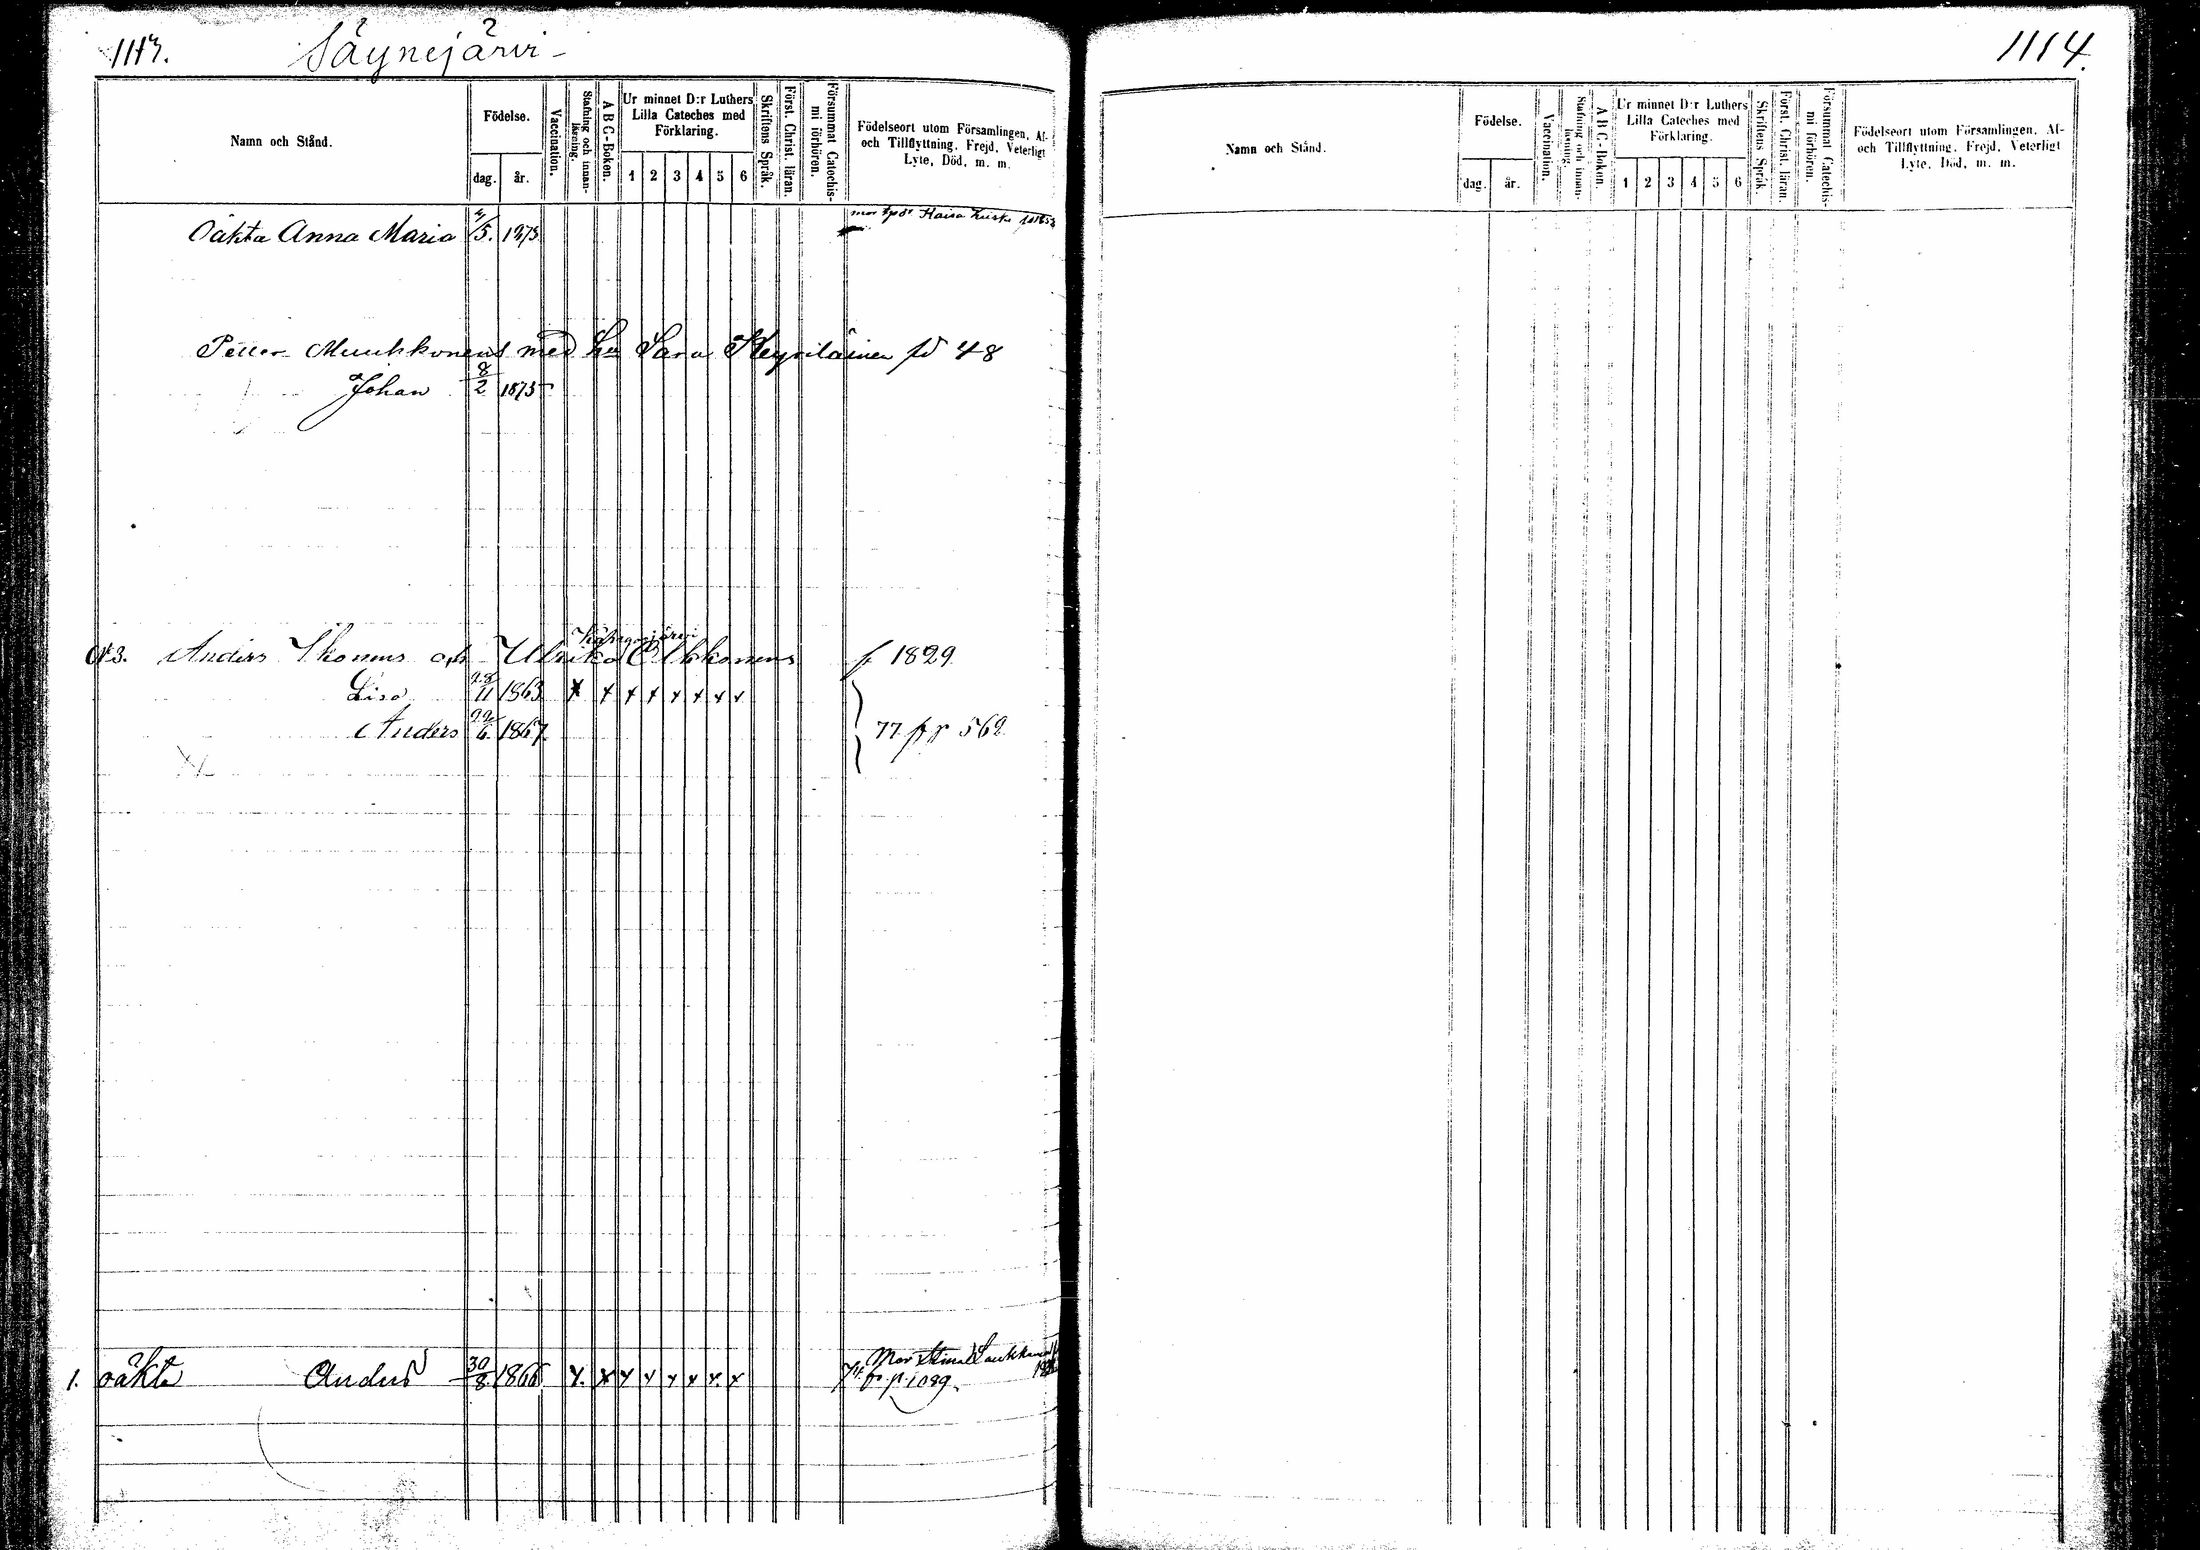 1113. Säynejärvi
Namn och Stånd.
Födelse.
dag. år.
Vaccination.
Stafning och innan-
läsning.
ABC-Boken.
Ur minnet D:r Luthers
Lilla Cateches med
Förklaring.
1 2 3 4 5 6
Skriftens Språk.
Först. Christ. läran.
Försummat Catechis-
mi förhören.
Födelseort utom Församlingen, Af-
och Tillflyttning, Frejd, Veterligt
Lyte, Död, m. m.
mor Kaisa
Oäkta Anna Maria 5. 1873
Petter Muukkonens med hu Sara fd 48
Johan 8/2 1873
Anders Ikonens och Ulrika f 1829
Lisa 28/11 1863 x x x x x x x x
Anders 22/6 1867 77 fr p 562
Mor
1. oäkta Anders 30/8 1866 x. x x x x x x. x fr. p. 1089.
1114.
Namn och Stånd.
Födelse.
dag. år.
Vaccination.
Stafning och innan-
läsning.
ABC-Boken.
Ur minnet D:r Luthers
Lilla Cateches med
Förklaring.
1 2 3 4 5 6
Skriftens Språk.
Först. Christ. läran.
Försummat Catechis-
mi förhören.
Födelseort utom Församlingen, Af-
och Tillflyttning, Frejd, Veterligt
Lyte, Död, m. m.